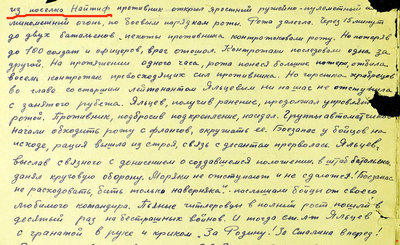 из поселка Найтиф противник открыл яростный ружейно-пулеметный и
минометный огонь, по боевым порядкам роты. Рота залегла. Через 15 минут
до двух батальонов, пехоты противника контратаковали роту. Но потеряв
до 100 солдат и офицеров, враг отошел. Контратаки последовали одна за
другой. На протяжении одного часа, рота понеся большие потери, отбила
восемь контратак превосходящих сил противника. Но горстка храбрецов
во главе со старшим лейтенантом Яльцевым ни на шаг не отступила
с занятого рубежа. Яльцев, получив ранение, продолжал управлять
ротой. Противник, подбросив подкрепление, наседал. Группы автоматчиков
начали обходить роту с флангов, окружать ее. Боезапас у бойцов на
исходе, рация вышла из строя, связь с десантом прервалась. Яльцев,
выслав связного с донесением о создавшемся положении, в штаб батальона,
занял круговую оборону. Моряки не отступают и не сдаются! "Боезапас
не расходовать, бить только наверняка" - послышали бойцы от своего
любимого командира. Пьяные гитлеровцы в полный рост пошли в
десятый раз на бесстрашных воинов. И тогда ст. л-т Яльцев
с гранатой в руке и криком „За Родину! За Сталина вперед!